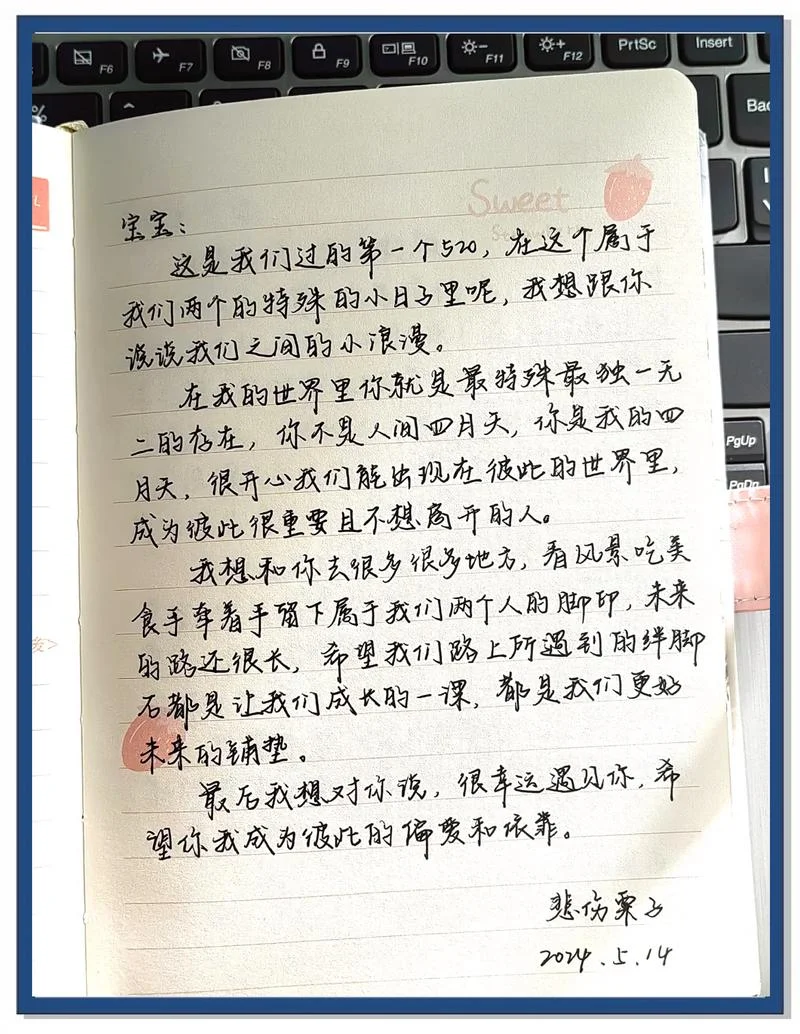 F6
F7
F8
F9
F10
F11
F12
PrtSc
Insert
Bac
PgUp
PgDn
L
Sweet
宝宝：
这是我们过的第一个520，在这个属于
我们两个的特殊的小日子里呢，我想跟你
说说我们之间的小浪漫。
在我的世界里你就是最特殊最独一无
二的存在，你不是人间四月天，你是我的四
月天，很开心我们能出现在彼此的世界里，
成为彼此很重要且不想离开的人。
我想和你去很多很多地方，看风景吃美
食手牵着手留下属于我们两个人的脚印，未来
的路还很长，希望我们路上所遇到的绊脚
石都是让我们成长的一课，都是我们更好
未来的铺垫。
最后我想对你说，很幸运遇见你，希
望你我成为彼此的偏爱和依靠。
悲伤栗子
2024.5.14